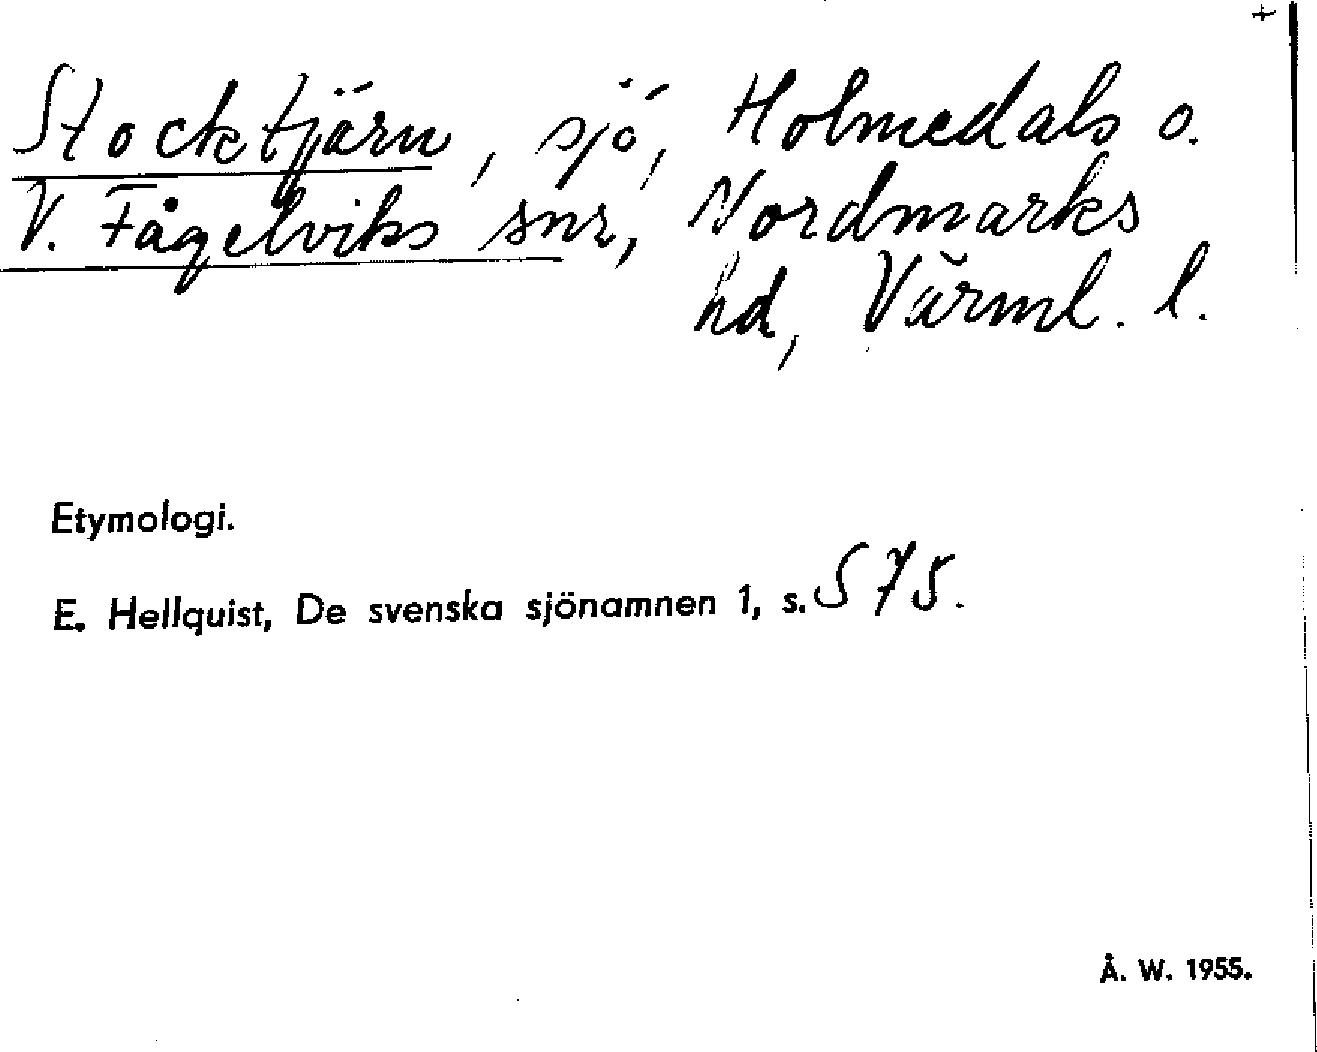 +
Stocktjärn, sjö, Holmedals o.
V. Fågelviks snr, Nordmarks
hd, Värml. l.
Etymologi.
E. Hellquist, De svenska sjönamnen 1, s. 575.
Å. W. 1955.